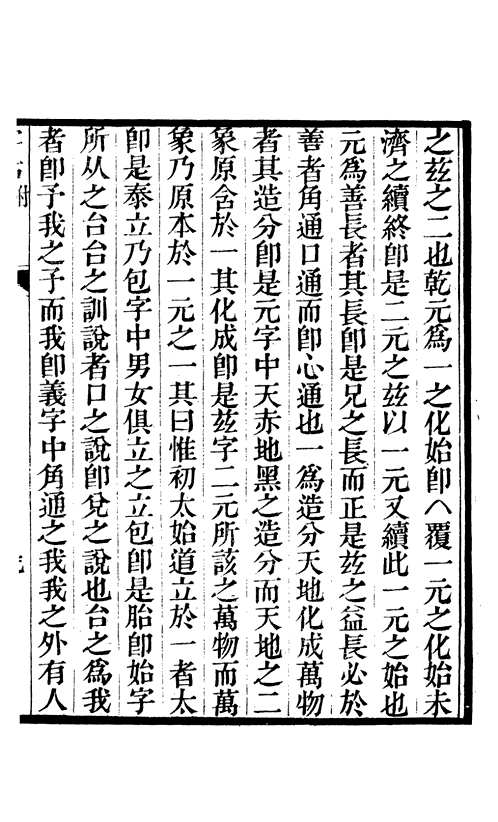 之茲之二也乾元爲一之化始卽𠆢覆一元之化始未
濟之續終卽是二元之茲以一元又續此一元之始也
元爲善長者其長卽是兄之長而正是茲之益長必於
善者角通口通而卽心通也一爲造分天地化成萬物
者其造分卽是元字中天赤地黑之造分而天地之二
象原含於一其化成卽是茲字二元所該之萬物而萬
象乃原本於一元之一其曰惟初太始道立於一者太
卽是泰立乃包字中男女俱立之立包卽是胎卽始字
所从之台台之訓說者口之說卽兌之說也台之爲我
者卽予我之予而我卽義字中角通之我我之外有人